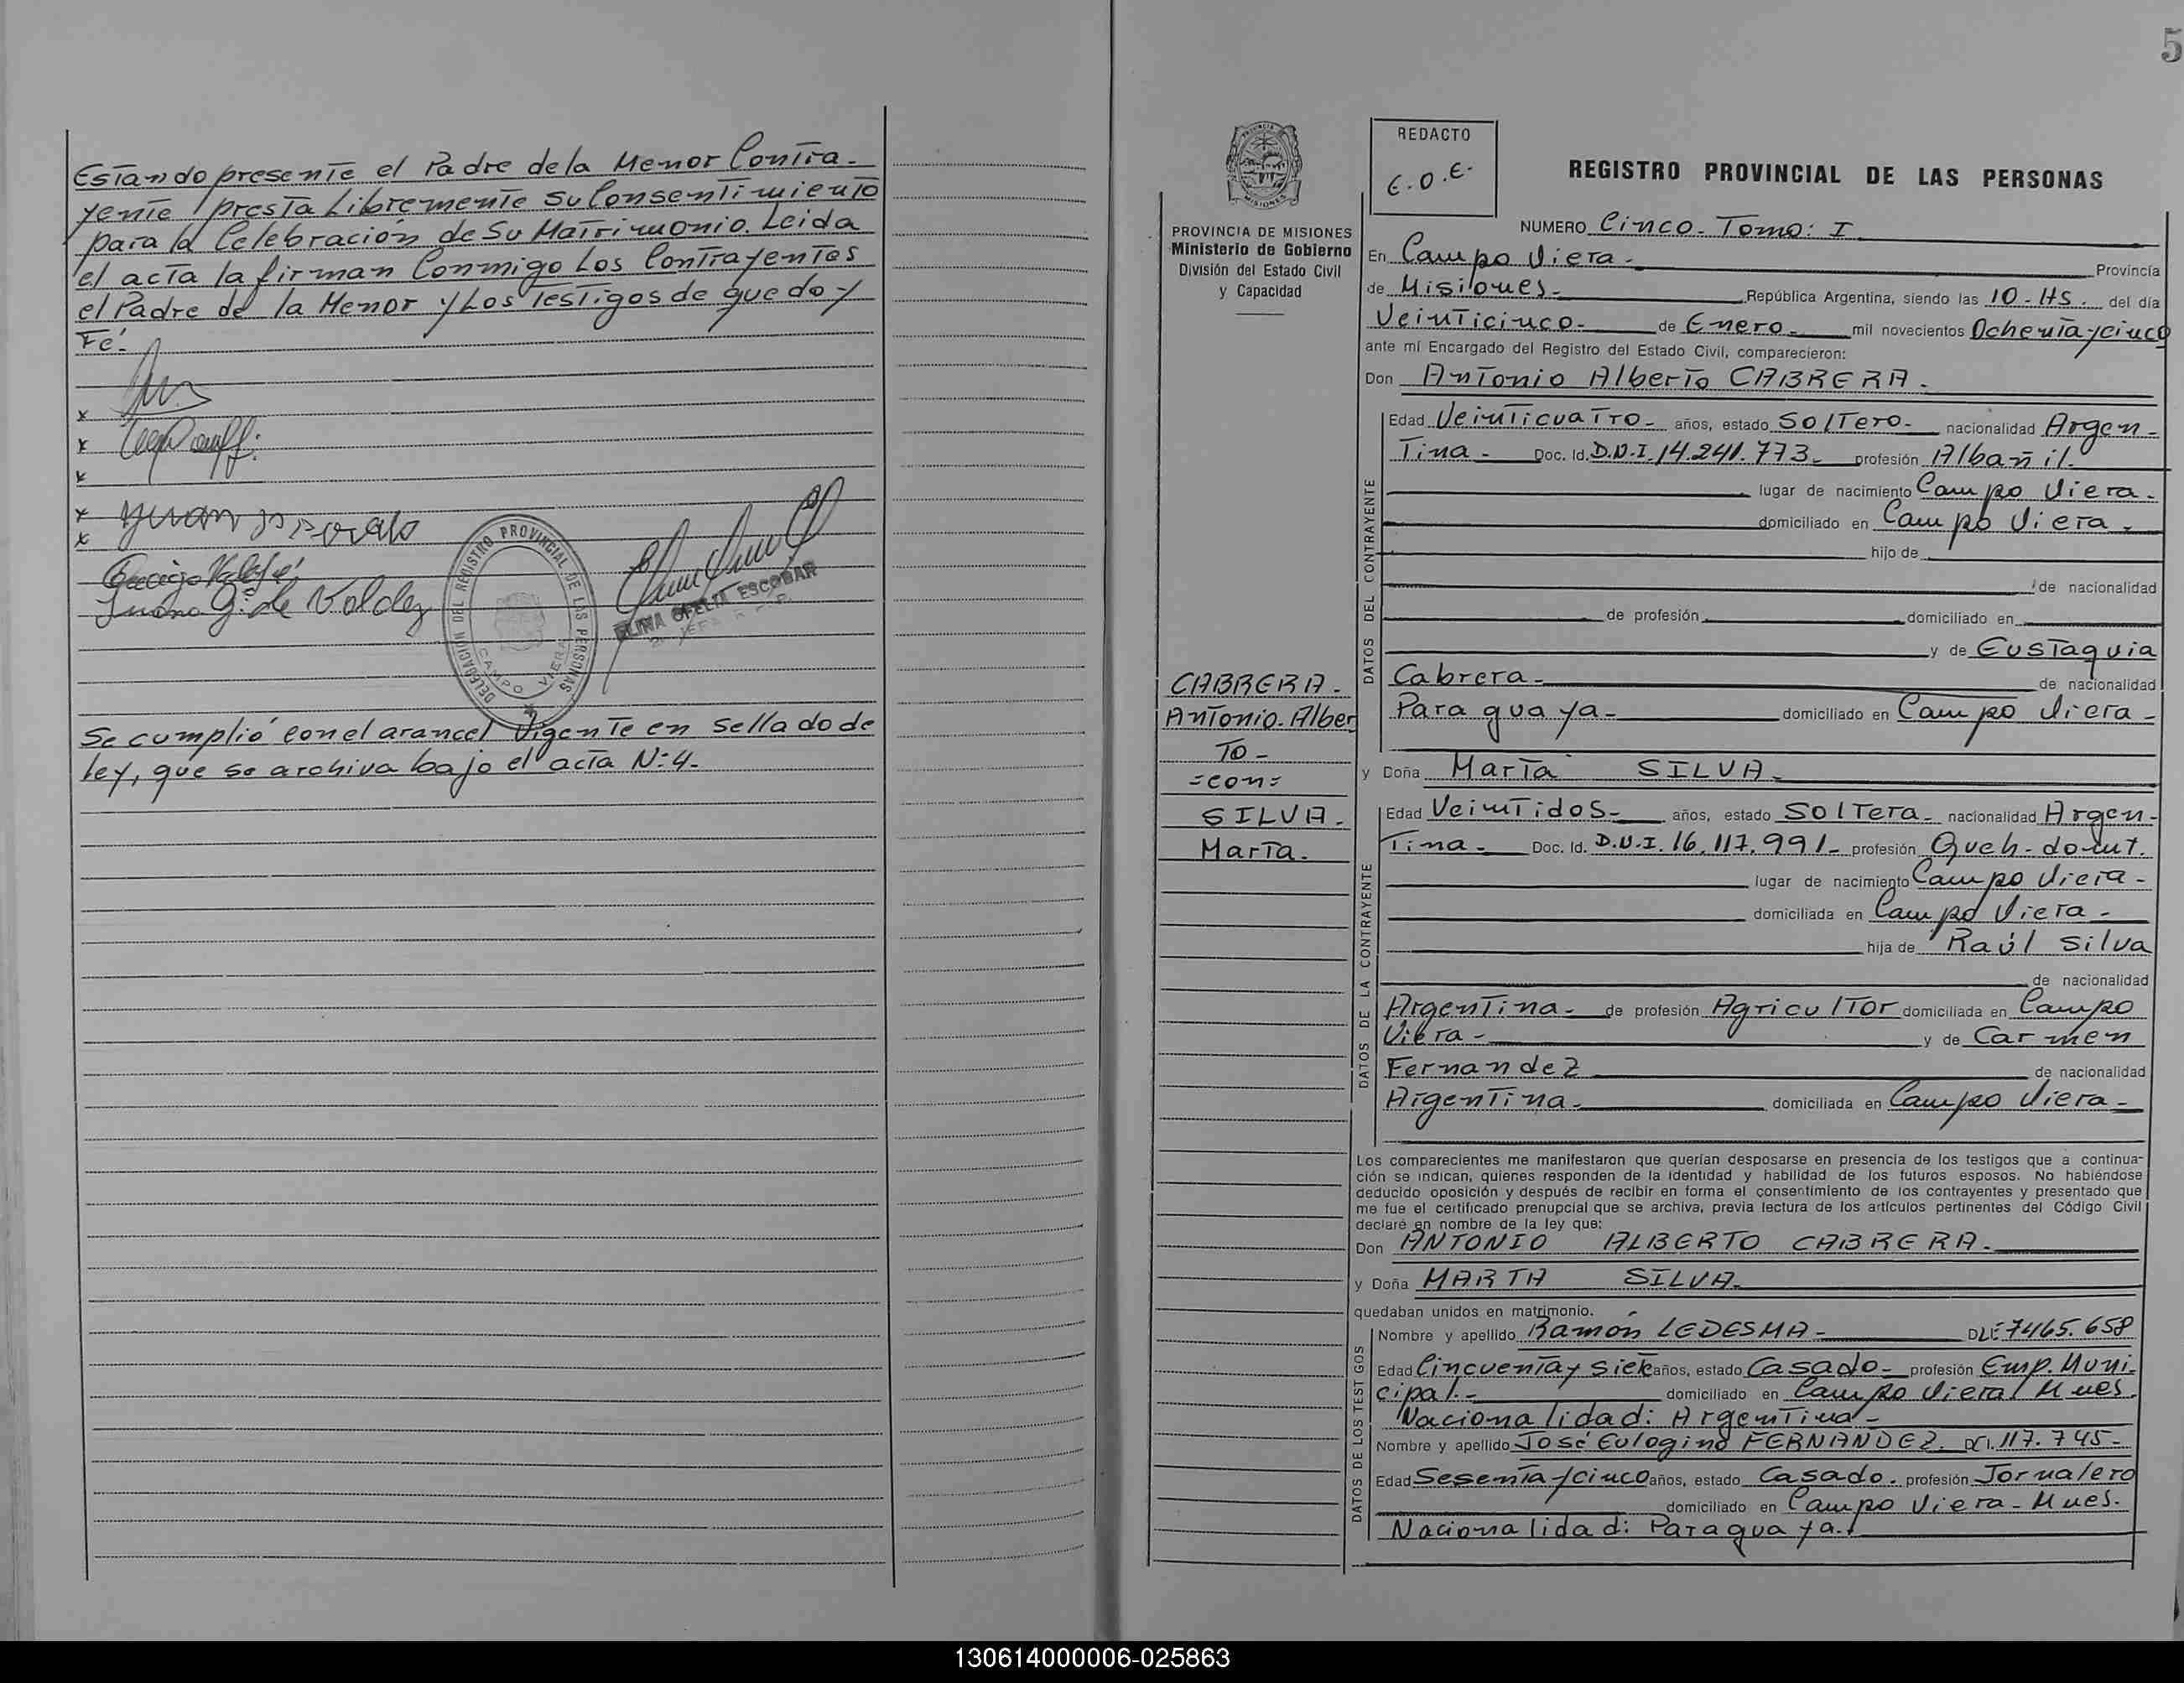 Estando presente el Padre de la Menor Contra-
yente presta Libremente su Consentimiento
para la Celebración de Su Matrimonio. Leida
el acta la firman Conmigo Los Contrayentes
el Padre de la Menor y Los Testigos de que doy
Fé.-
x
x
x
x
x
Juana G. de Valdez
DELEGACION DEL REGISTRO PROVINCIAL DE LAS PERSONAS
CAMPO VIERA
ELINA OFELIA ESCOBAR
Se cumplió con el arancel Vigente en sellado de
ley, que se archiva bajo el acta N:4.-
5
PROVINCIA DE MISIONES
Ministerio de Gobierno
División del Estado Civil
y Capacidad
CABRERA.-
Antonio. Alber
To-
=con=
SILVA.-
Marta.
REDACTO
E.O.E.
REGISTRO PROVINCIAL DE LAS PERSONAS
NUMERO Cinco. Tomo: I
En Campo Viera.- Provincia
de Misiones.- República Argentina, siendo las 10-Hs. del día
Veinticinco.- de Enero.- mil novecientos Ochenta y cinco
ante mí Encargado del Registro del Estado Civil, comparecieron:
Don Antonio Alberto CABRERA.
DATOS DEL CONTRAYENTE
Edad Veinticuatro- años, estado Soltero- nacionalidad Argen-
Tina- Doc. Id. D.N.I. 14.241.773.- profesión Albañil.-
lugar de nacimiento Campo Viera.
domiciliado en Campo Viera.
hijo de
de nacionalidad
de profesión domiciliado en
y de Eustaquia
Cabrera- de nacionalidad
Paraguaya- domiciliado en Campo Viera-
y Doña Marta SILVA-
DATOS DE LA CONTRAYENTE
Edad Veintidos- años, estado Soltera- nacionalidad Argen-
Tina- Doc. Id. D.N.I. 16.117.991- profesión Queh-domt.
lugar de nacimiento Campo Viera-
domiciliada en Campo Viera-
hija de Raúl Silva
de nacionalidad
Argentina- de profesión Agricultor domiciliada en Campo
Viera- y de Carmen
Fernandez de nacionalidad
Argentina- domiciliada en Campo Viera-
Los comparecientes me manifestaron que querían desposarse en presencia de los testigos que a continua-
ción se indican, quienes responden de la identidad y habilidad de los futuros esposos. No habiéndose
deducido oposición y después de recibir en forma el consentimiento de los contrayentes y presentado que
me fue el certificado prenupcial que se archiva, previa lectura de los artículos pertinentes del Código Civil
declaré en nombre de la ley que:
Don ANTONIO ALBERTO CABRERA.-
y Doña MARTA SILVA-
quedaban unidos en matrimonio.
DATOS DE LOS TESTIGOS
Nombre y apellido Ramón LEDESMA- DLE 7465.658
Edad Cincuenta y Siete años, estado Casado- profesión Emp. Muni-
cipal.- domiciliado en Campo Viera Mnes.
Nacionalidad: Argentina-
Nombre y apellido José Eulogino FERNANDEZ. DCI. 117.745-
Edad Sesenta y cinco años, estado Casado. profesión Jornalero
domiciliado en Campo Viera- Mnes.
Nacionalidad: Paraguaya.
130614000006-025863